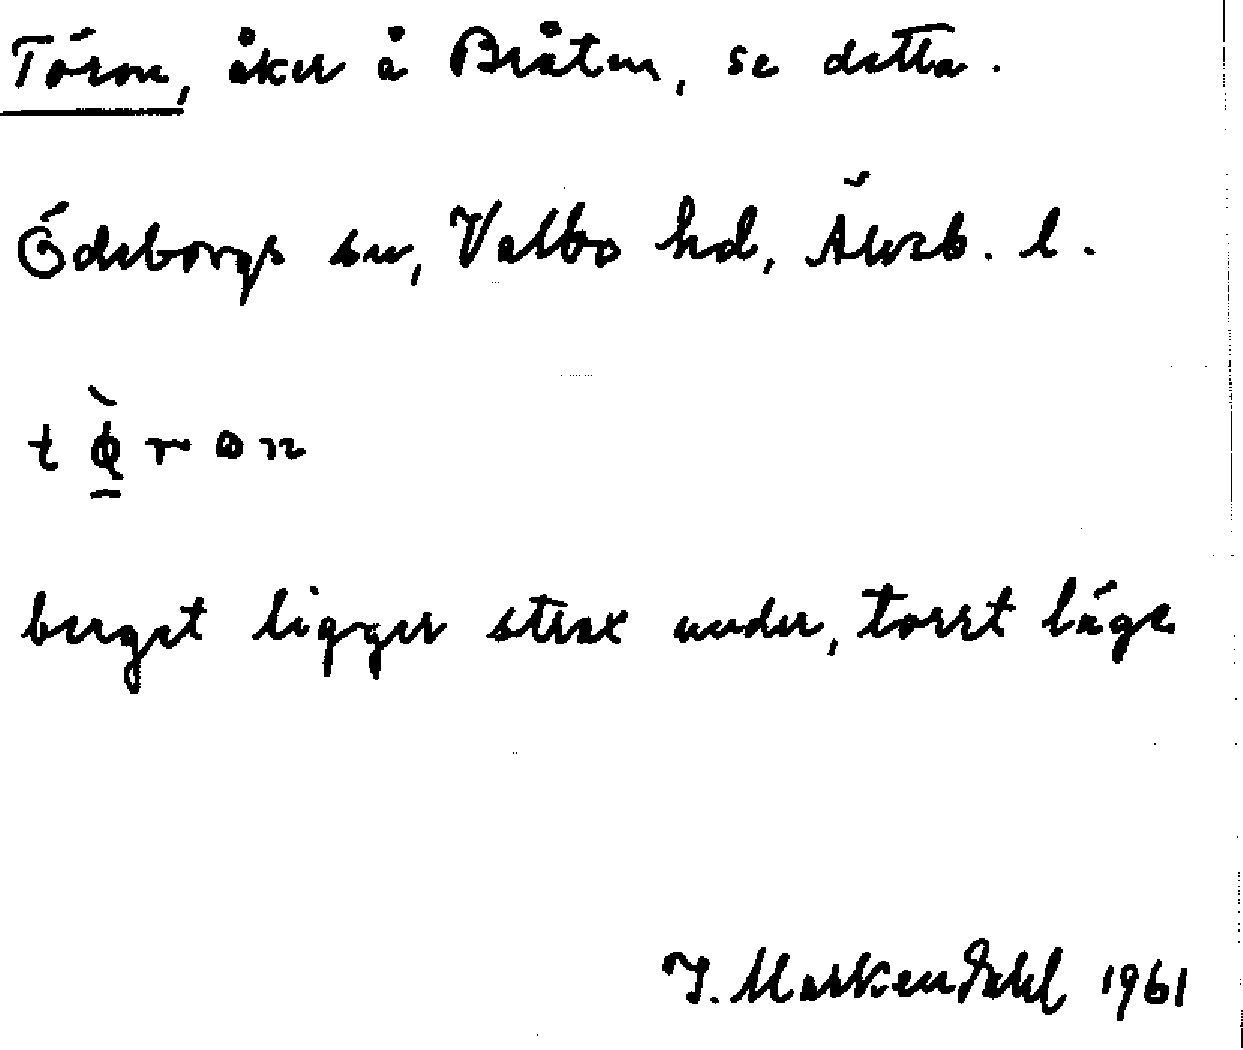 Töron, åker å Bråten, se detta.
Ödeborgs sn, Valbo hd, Älvsb. l.
t ø̀ r o n
berget ligger strax under, torrt läge
J. Markendahl 1961